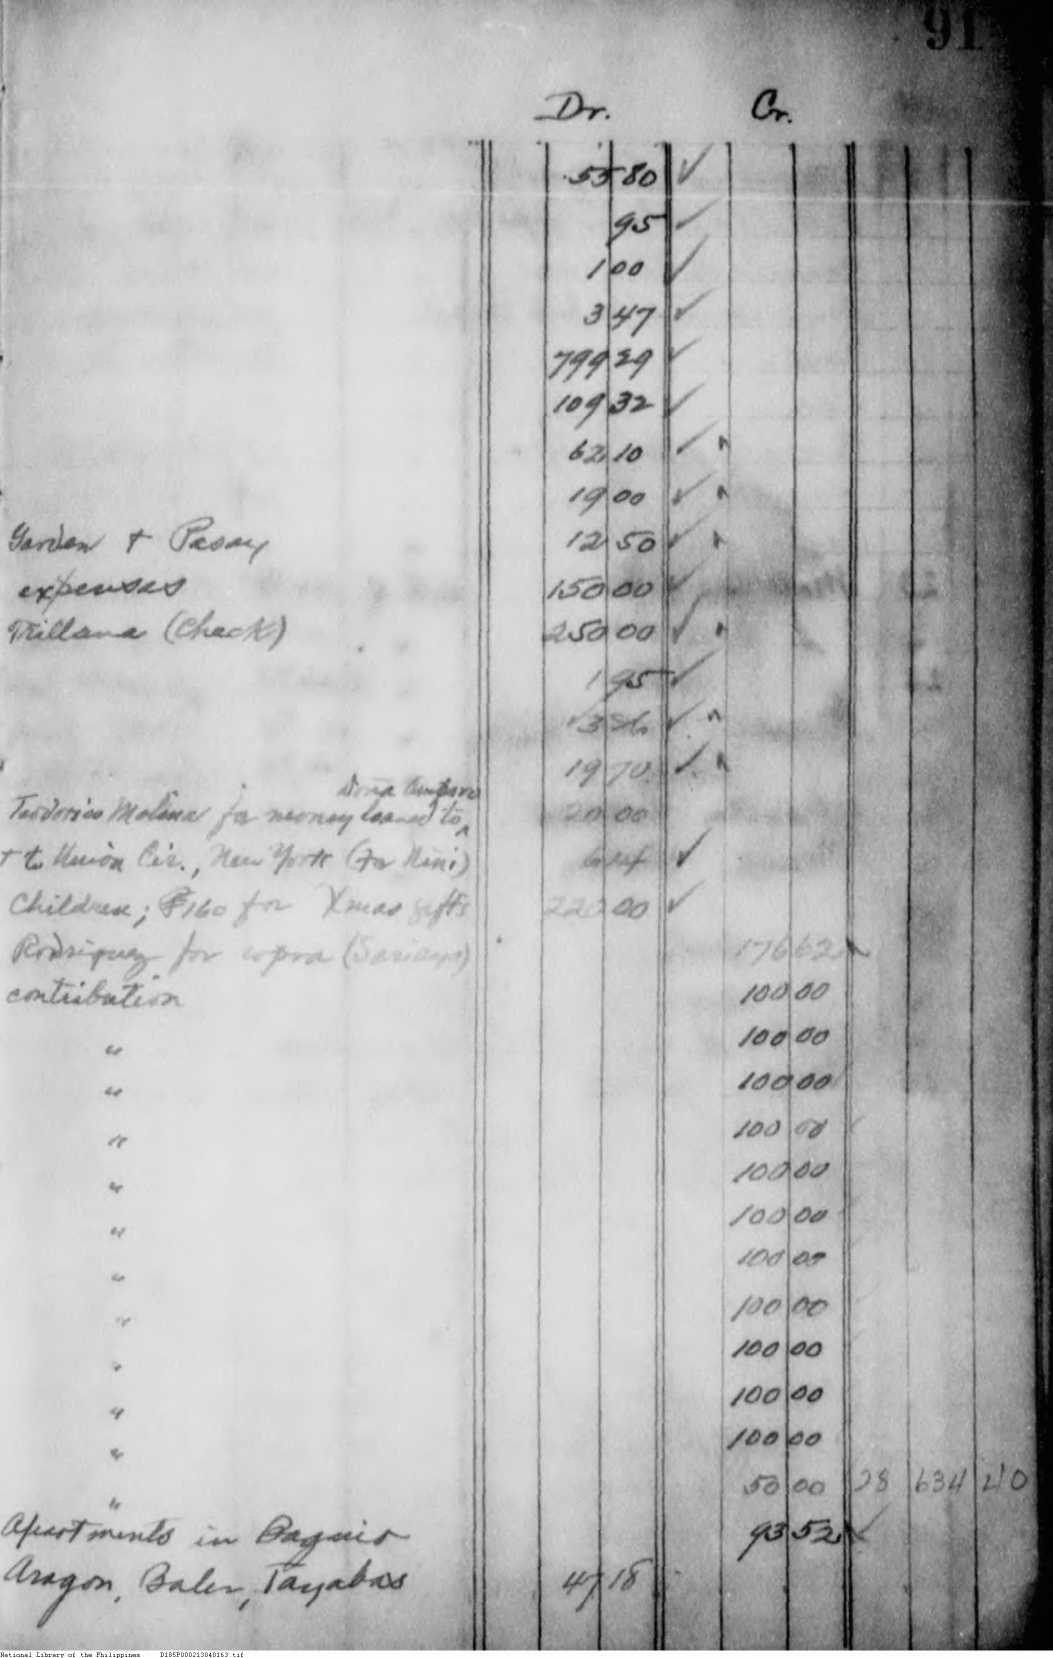 91
Dr. Cr.
55 80 ✓
95 ✓
1 00 ✓
3 47 ✓
799 29 ✓
109 32 ✓
62 10 ✓
19 00 ✓
Garden + Pasay 12 50 ✓
expenses 150 00 ✓
Trillana (Check) 250 00 ✓
1 95 ✓
3 26 ✓
19 70 ✓
Doña Amparo
Teodorico Molina for money loaned to ^ 20 00
+ to Union Cir., New York (for Nini) ✓
Children; ₱160 for Xmas gifts 220 00 ✓
Rodriguez for copra (Sariaya) 176 62
contribution 100 00
" 100 00
" 100 00
" 100 00
" 100 00
" 100 00
" 100 00
" 100 00
" 100 00
" 100 00
" 100 00
" 50 00 28 634 40
Apartments in Baguio 93 52 ✓
Aragon, Baler, Tayabas 47 18
National Library of the Philippines D185P000213040163.tif